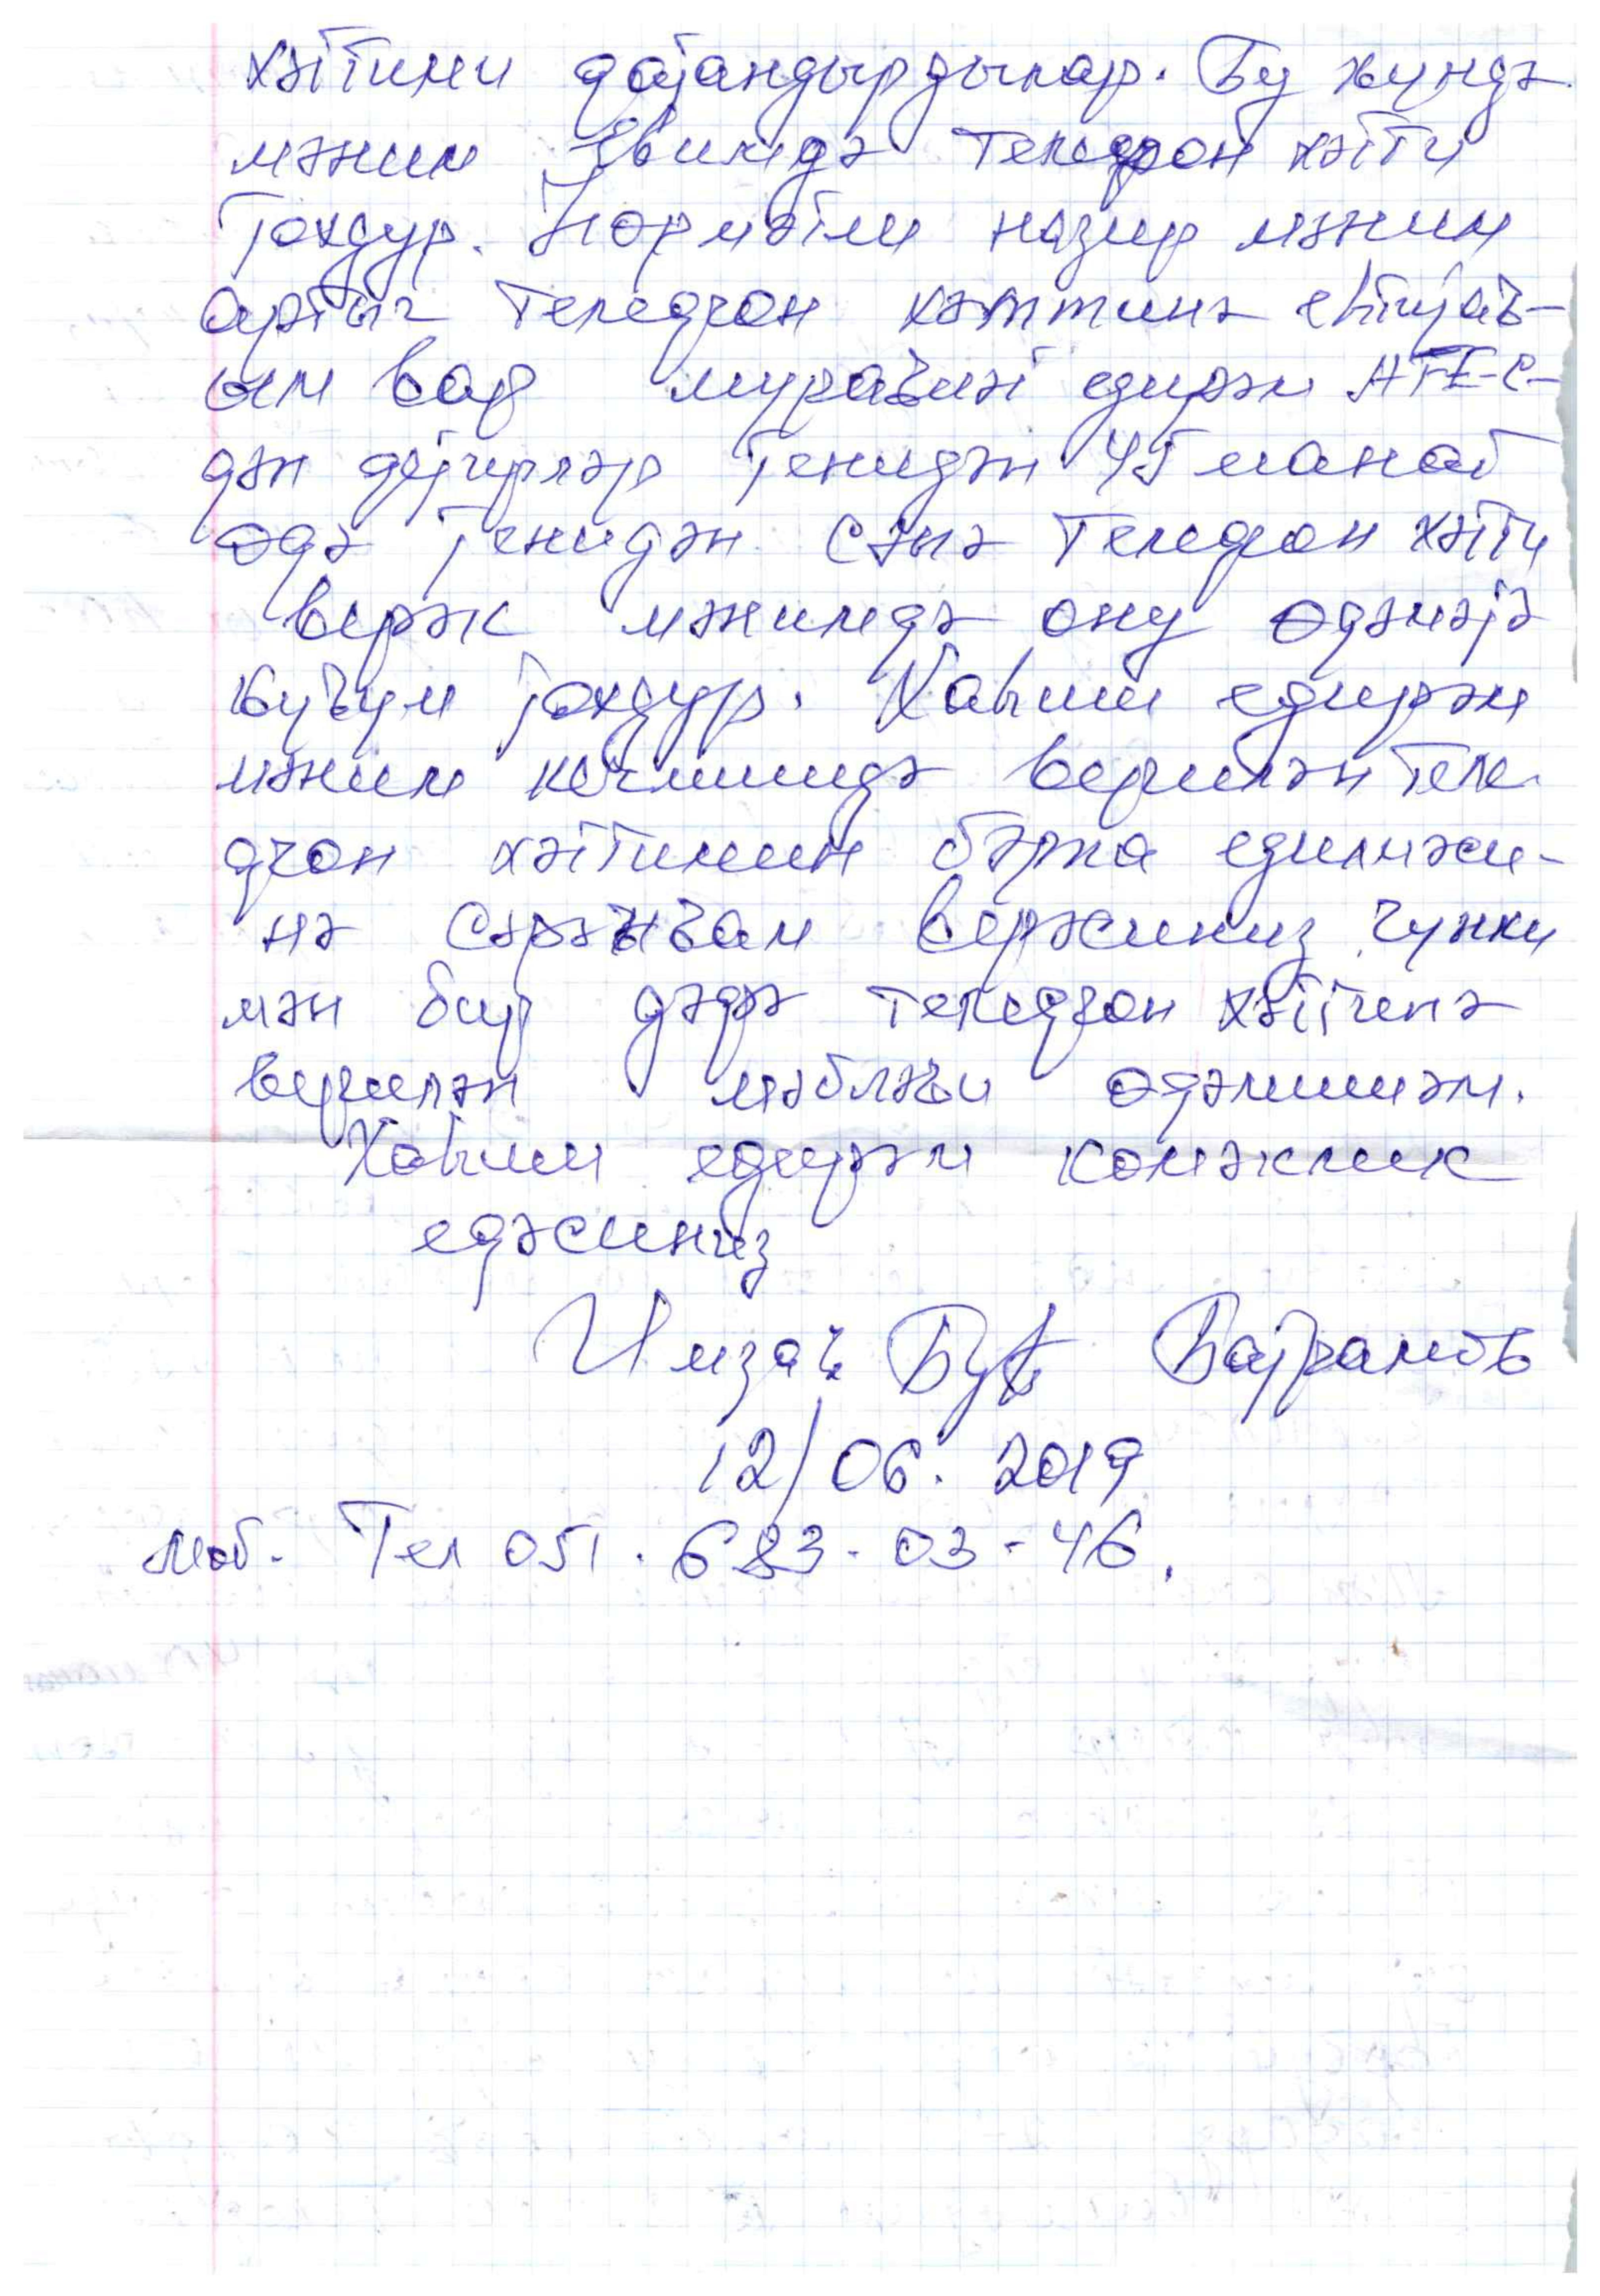 хәттими дајандырдылар. Бу күндә
мәним евимдә телефон хәтти
јохдур. Һөрмәтли назир мәним
артыг телефон хәттинә еһтијаҹ-
ым вар мураҹиәт едирәм АТЕ-С-
дән дејирләр јенидән 45 манат
өдә јенидән сәнә телефон хәтти
верәк мәнимдә ону өдәмәјә
күҹүм јохдур. Хаһиш едирәм
мәним кечмишдә верилән теле
фон хәттимин бәрпа едилмәси-
нә сәрәнҹам верәсиниз чүнки
мән бир дәфә телефон хәттинә
верилән мәбләғи өдәмишәм.
Хаһиш едирәм көмәклик
едәсиниз
Имза Бајрамов
12/06. 2019
моб. Тел 051. 683-03-46.